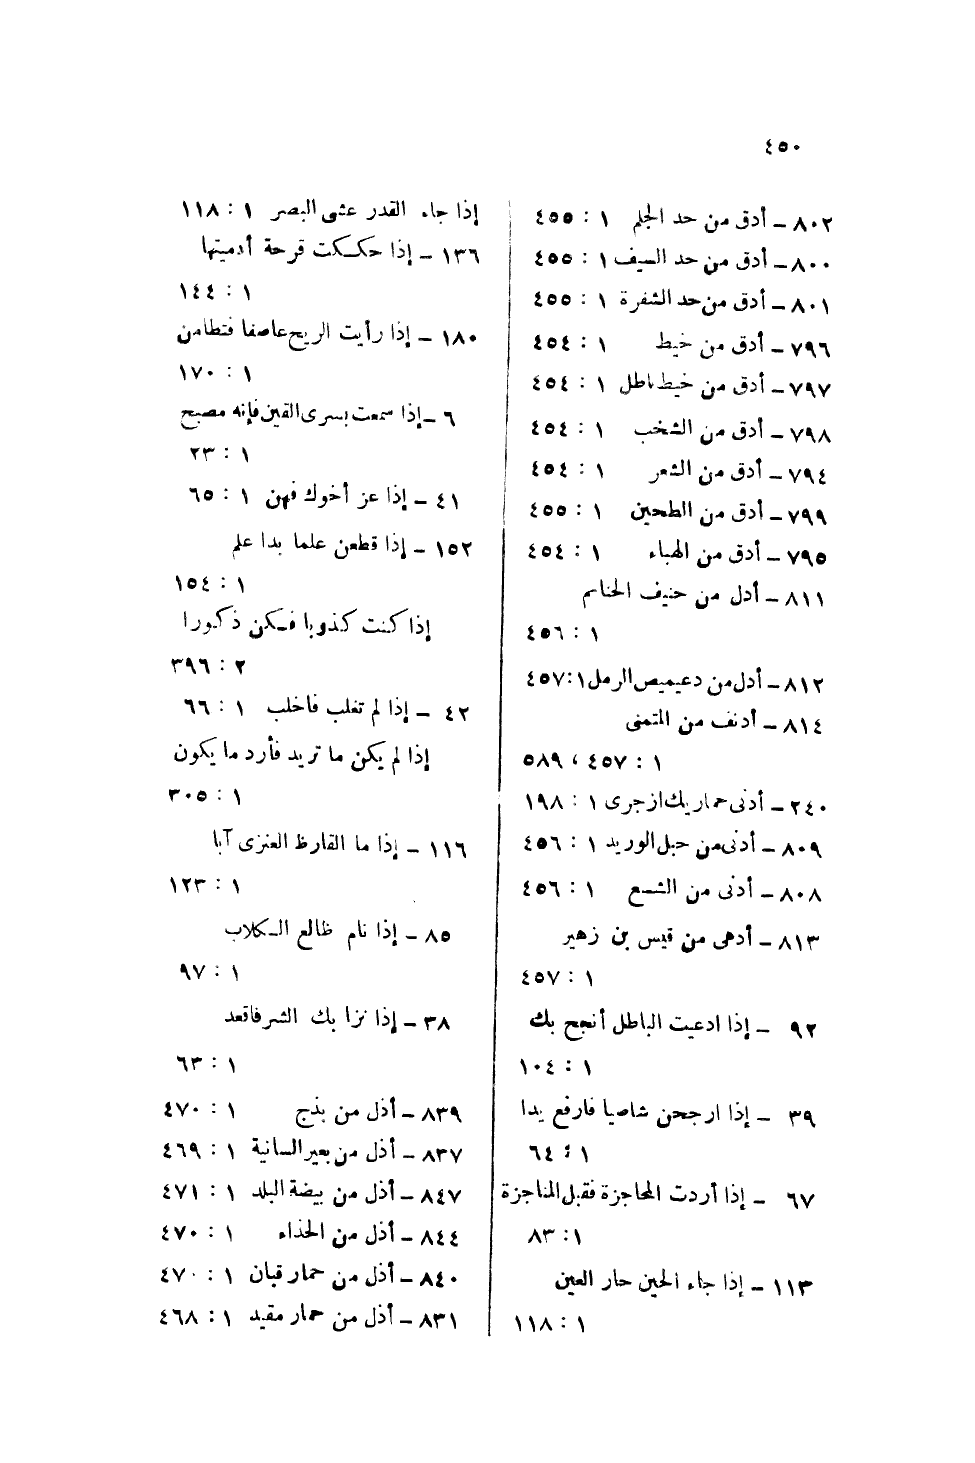 ٤٥٠
٨٠٢ – أدق من حد الجلم ١ : ٤٥٥
٨٠٠ – أدق من حد السيف ١ : ٤٥٥
٨٠١ – أدق من حد الشفرة ١ : ٤٥٥
٧٩٦ – أدق من خيط ١ : ٤٥٤
٧٩٧ – أدق من خيط باطل ١ : ٤٥٤
٧٩٨ – أدق من الشخب ١ : ٤٥٤
٧٩٤ – أدق من الشعر ١ : ٤٥٤
٧٩٩ – أدق من الطحين ١ : ٤٥٥
٧٩٥ – أدق من الهباء ١ : ٤٥٤
٨١١ – أدل من حنيف الحناتم
١ : ٤٥٦
٨١٢ – أدل من دعيميص الرمل ١ : ٤٥٧
٨١٤ – أدنف من المتمنى
١ : ٤٥٧ ، ٥٨٩
٢٤٠ – أدنى حماريك ازجرى ١ : ١٩٨
٨٠٩ – أدنى من حبل الوريد ١ : ٤٥٦
٨٠٨ – أدنى من الشسع ١ : ٤٥٦
٨١٣ – أدهى من قيس بن زهير
١ : ٤٥٧
٩٢ – إذا ادعيت الباطل أنجح بك
١ : ١٠٤
٣٩ – إذا ارجحن شاصيا فارفع يدا
١ : ٦٤
٦٧ – إذا أردت المحاجزة فقبل المناجزة
١ : ٨٣
١١٣ – إذا جاء الحين حار العين
١ : ١١٨
إذا جاء القدر عشى البصر ١ : ١١٨
١٣٦ – إذا حككت قرحة أدميتها
١ : ١٤٤
١٨٠ – إذا رأيت الريح عاصفا فتطامن
١ : ١٧٠
٦ – إذا سمعت بسرى القين فإنه مصبح
١ : ٢٣
٤١ – إذا عز أخوك فهن ١ : ٦٥
١٥٢ – إذا قطعن علما بدا علم
١ : ١٥٤
إذا كنت كذوبا فكن ذكورا
٢ : ٣٩٦
٤٢ – إذا لم تغلب فاخلب ١ : ٦٦
إذا لم يكن ما تريد فأرد ما يكون
١ : ٣٠٥
١١٦ – إذا ما القارظ العنزى آبا
١ : ١٢٣
٨٥ – إذا نام ظالع الكلاب
١ : ٩٧
٣٨ – إذا نزا بك الشر فاقعد
١ : ٦٣
٨٣٩ – أذل من بذج ١ : ٤٧٠
٨٣٧ – أذل من بعير السانية ١ : ٤٦٩
٨٤٧ – أذل من بيضة البلد ١ : ٤٧١
٨٤٤ – أذل من الحذاء ١ : ٤٧٠
٨٤٠ – أذل من حمار قبان ١ : ٤٧٠
٨٣١ – أذل من حمار مقيد ١ : ٤٦٨